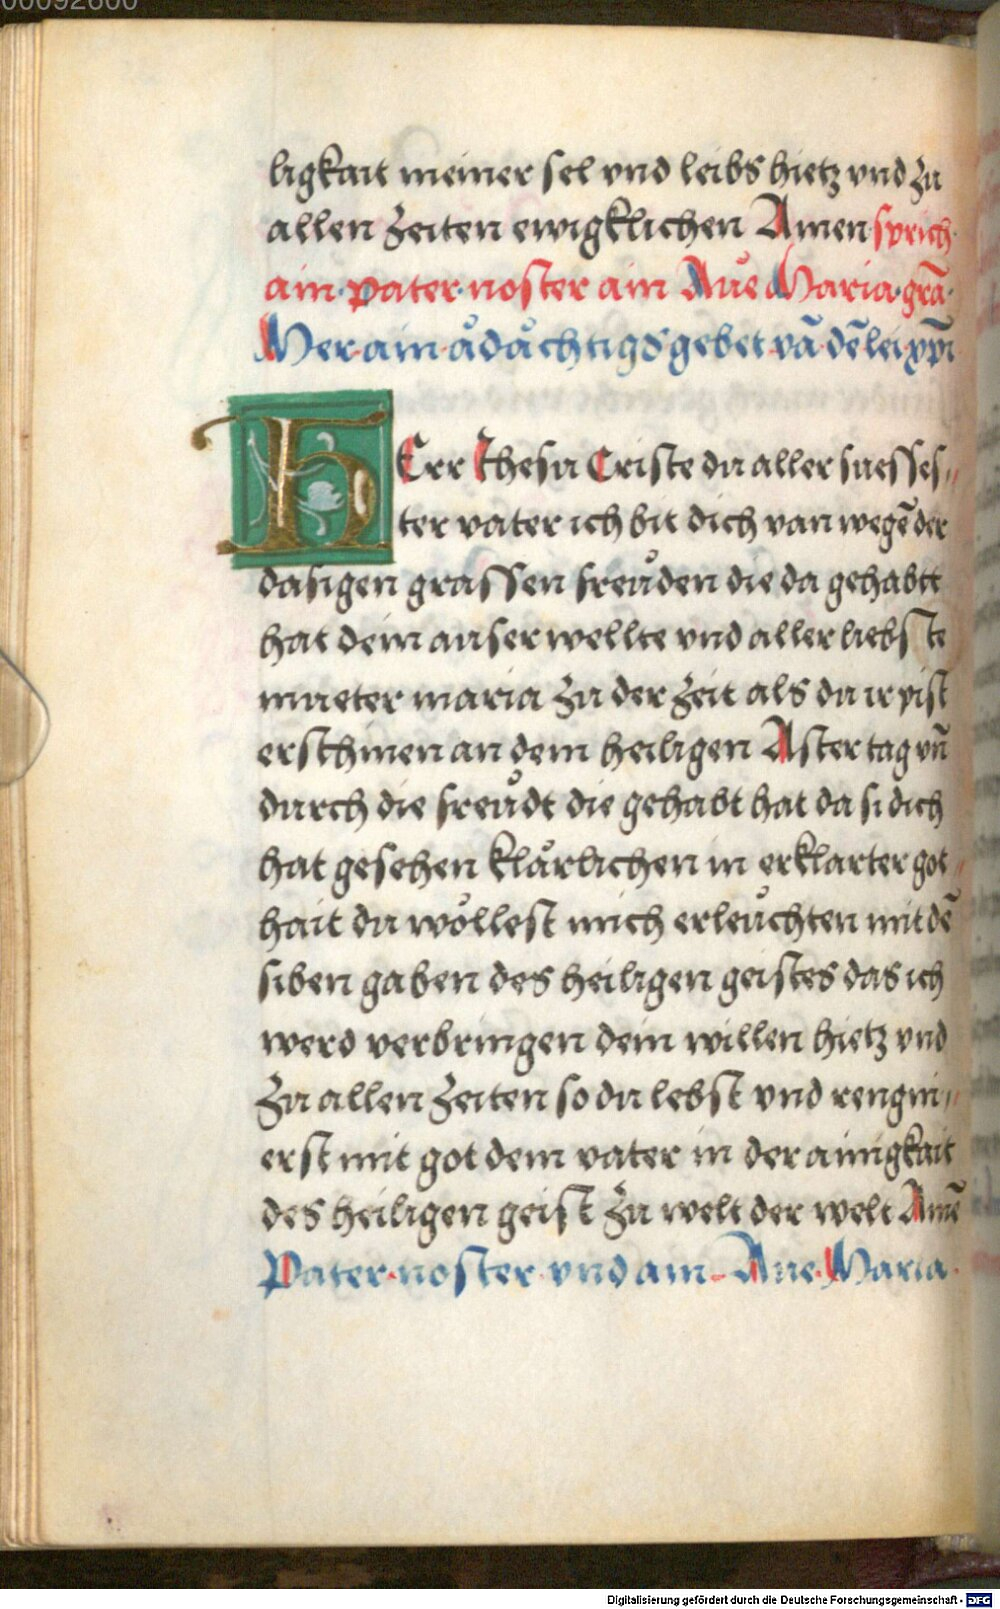 00092600
ligkait meiner sel vnd leibs hietz vnd zu
allen zeiten ewigklichen Amen sprich
ain pater noster ain Aue Maria gra͂
Mer ain ådåchtigs gebet vā dē lei xp̄i
HErr Jhesu Criste du aller suesses„
ter vater ich bit dich van wegē der
dasigen grassen freůden die da gehabtt
hat dein auserwellte vnd aller liebste
mueter maria zu der zeit als du ir pist
erschinen an dem heiligen Astertag vn̄
durch die freůdt die gehabt hat da si dich
hat gesehen klårlichen in erklarter got„
hait du wöllest mich erleůchten mit dē
siben gaben des heiligen geistes das ich
werd verbringen dein willen hietz vnd
zu allen zeiten so du lebst vnd rengni„
erst mit got dem vater in der ainigkait
des heiligen geist zu welt der welt Amē
Pater noster vnd ain Aue Maria
Digitalisierung gefördert durch die Deutsche Forschungsgemeinschaft - DFG